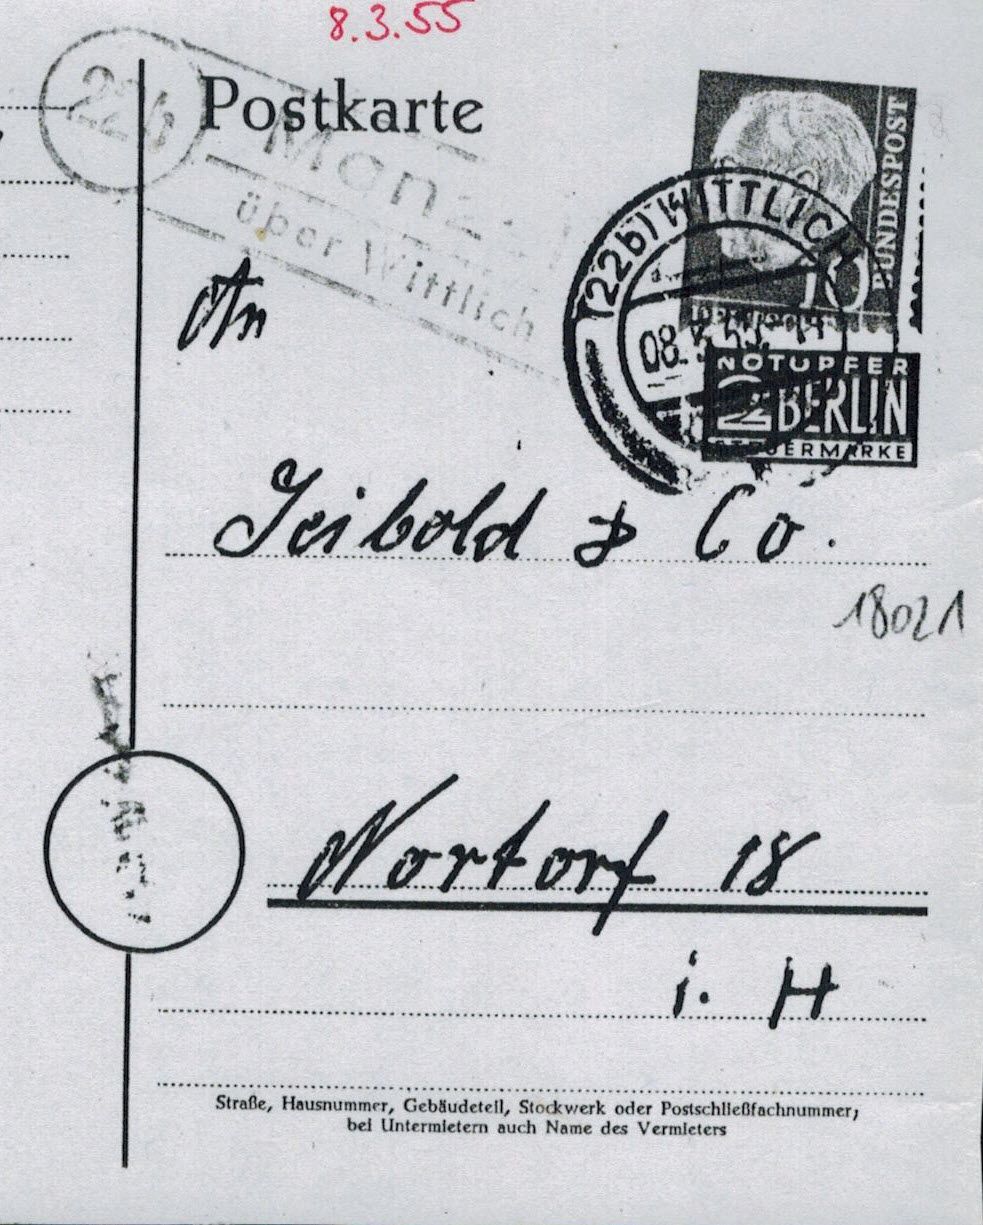 8.3.55
Postkarte
22b
über Wittlich
BUNDESPOST
10
(22b) WITTLICH
08.
NOTOPFER
2 BERLIN
STEUERMARKE
An
Seibold & Co.
18021
Nortorf 18
i. H
Straße, Hausnummer, Gebäudeteil, Stockwerk oder Postschließfachnummer;
bei Untermietern auch Name des Vermieters